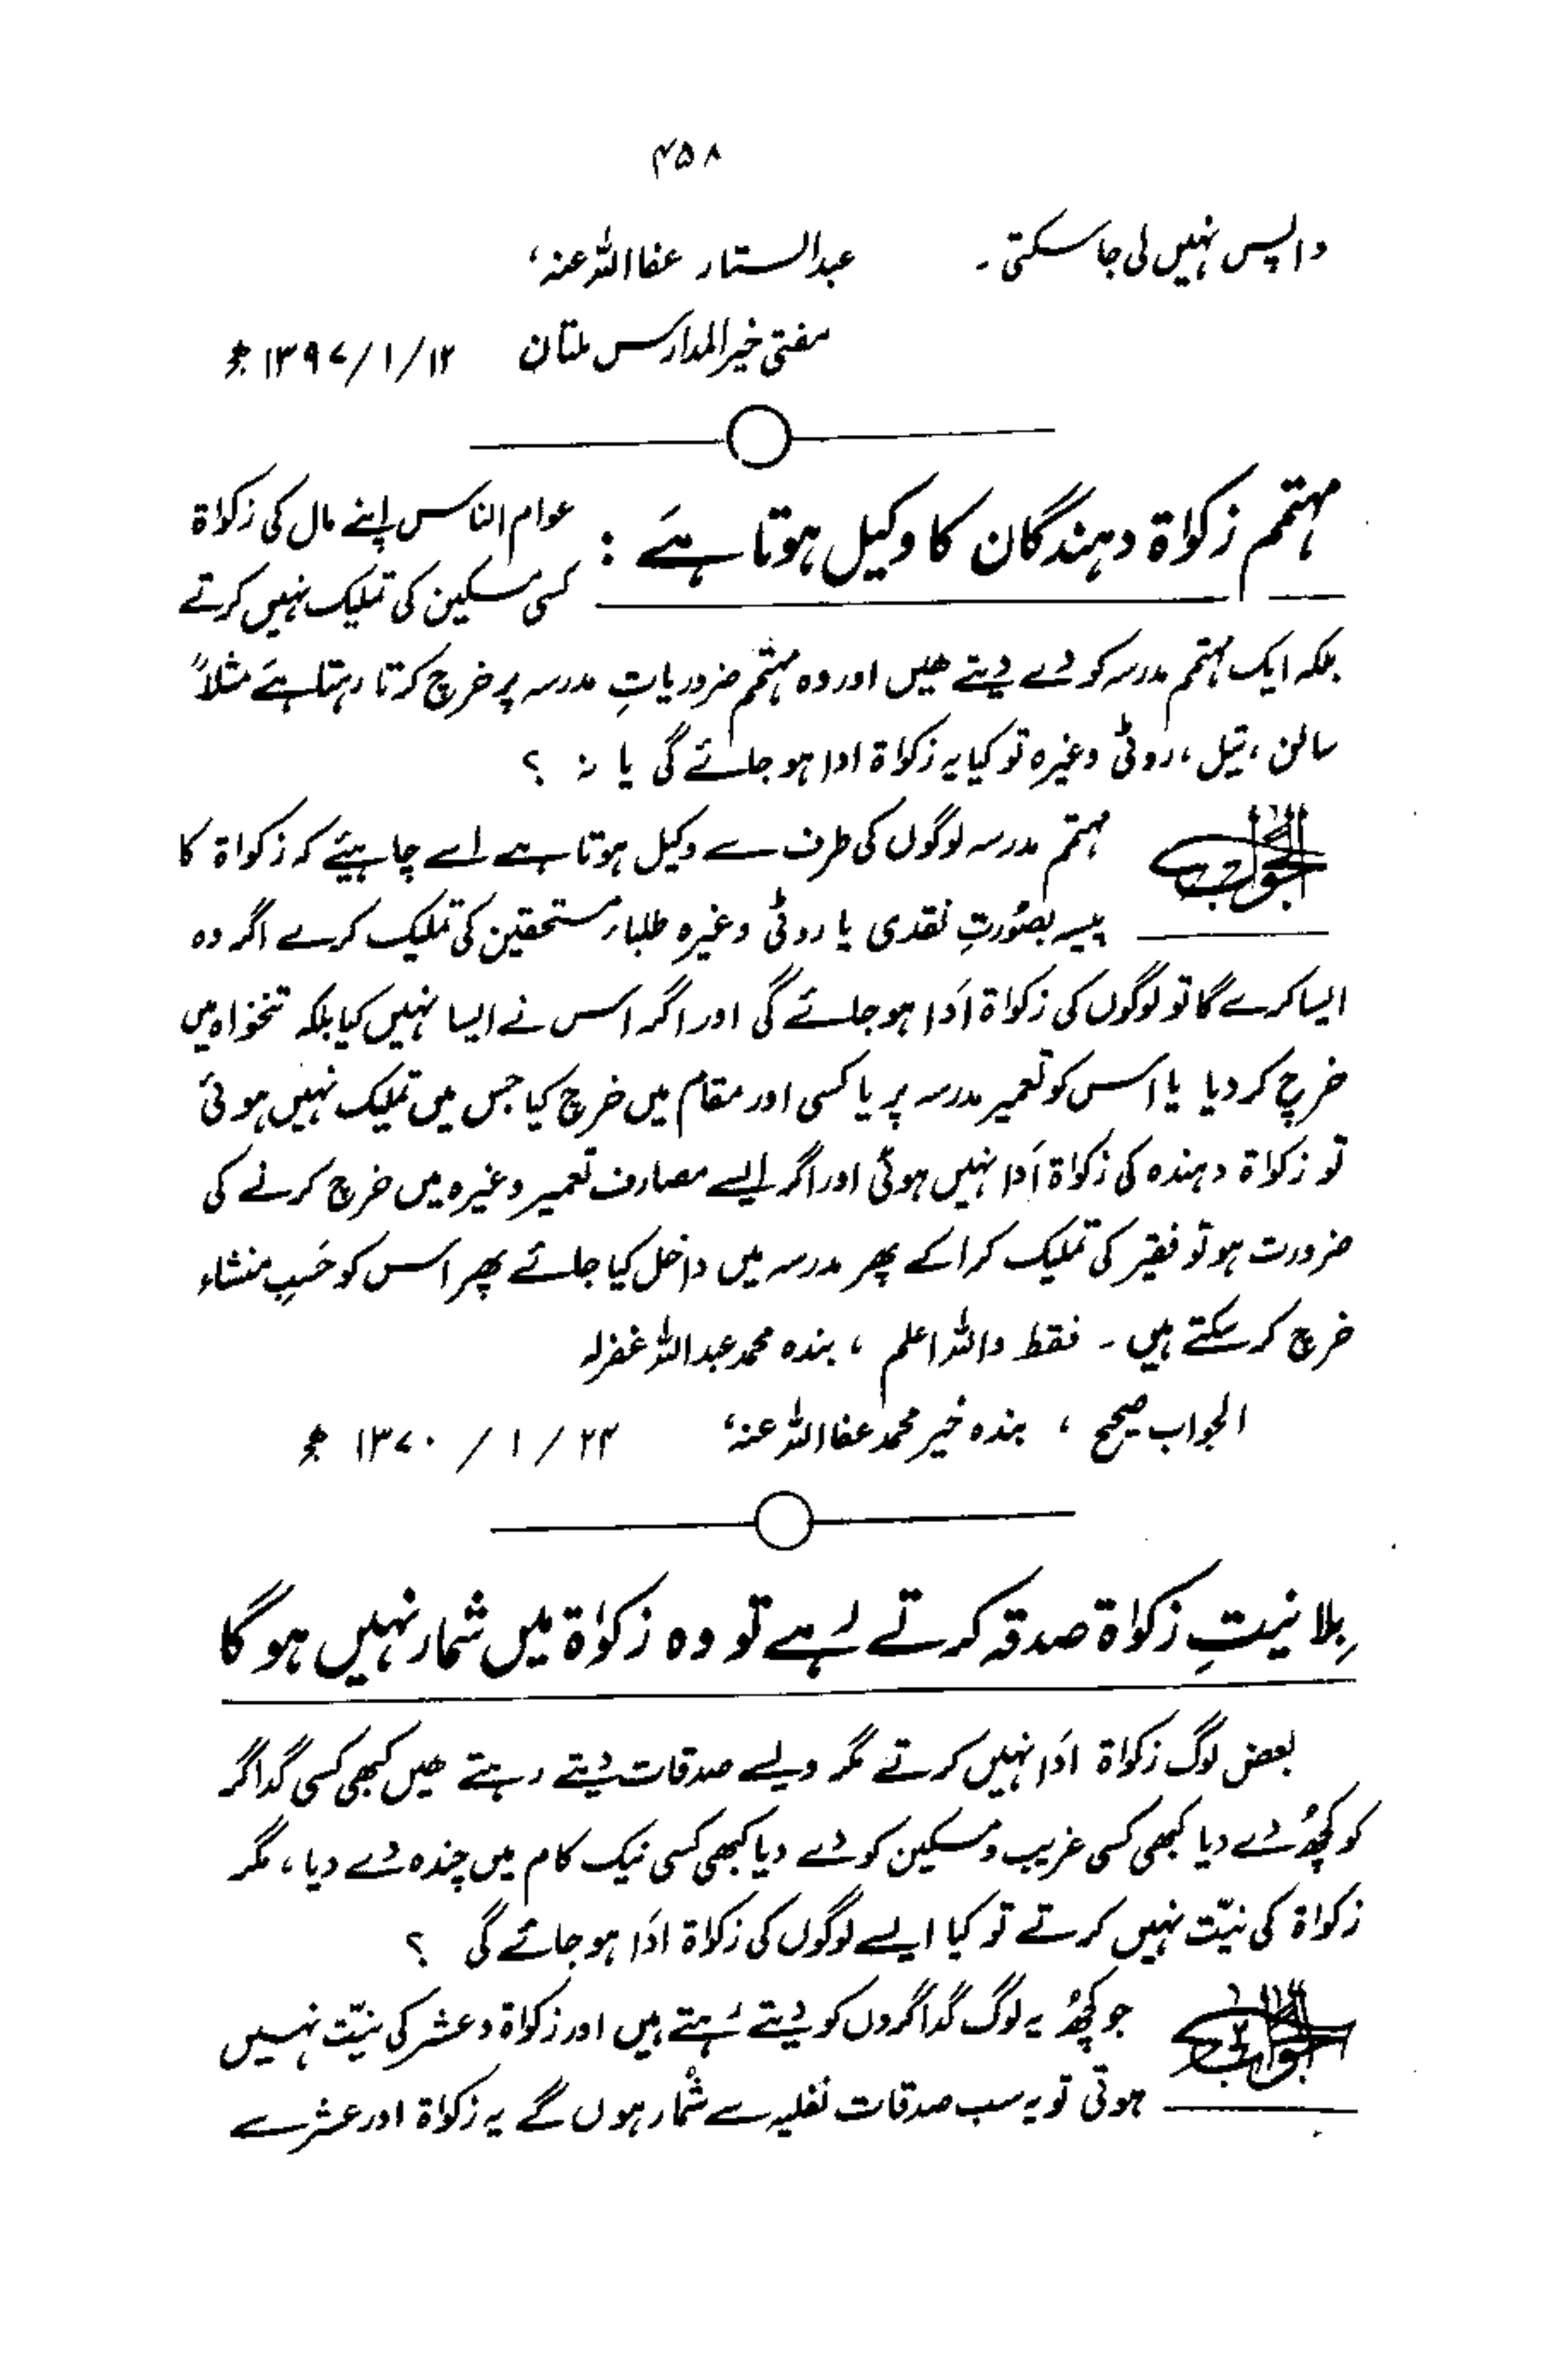 ۴۵۸
واپس نہیں لی جا سکتی۔ عبدالستار عفا اللہ عنہ،
مفتی خیر المدارس ملتان ۱۲/۱/۱۳۹۷ ھ
مہتمم زکواۃ دہندگان کا وکیل ہوتا ہے : عوام الناس اپنے مال کی زکواۃ
کسی مسکین کی تملیک نہیں کرتے
بلکہ ایک مہتمم مدرسہ کو دے دیتے ہیں اور وہ مہتمم ضروریاتِ مدرسہ پر خرچ کرتا رہتا ہے مثلاً
سالن، تیل، روٹی وغیرہ تو کیا یہ زکواۃ ادا ہو جائے گی یا نہ ؟
الجواب مہتمم مدرسہ لوگوں کی طرف سے وکیل ہوتا ہے اسے چاہیئے کہ زکواۃ کا
پیسہ بصُورتِ نقدی یا روٹی وغیرہ طلباء مستحقین کی تملیک کرے اگر وہ
ایسا کرے گا تو لوگوں کی زکواۃ اَدا ہو جائے گی اور اگر اس نے ایسا نہیں کیا بلکہ تنخواہ میں
خرچ کر دیا یا اس کو تعمیر مدرسہ پر یا کسی اور مقام میں خرچ کیا جس میں تملیک نہیں ہوئی
تو زکواۃ دہندہ کی زکواۃ اَدا نہیں ہوئی اور اگر ایسے مصارف تعمیر وغیرہ میں خرچ کرنے کی
ضرورت ہو تو فقیر کی تملیک کرا کے پھر مدرسہ میں داخل کیا جائے پھر اس کو حَسبِ منشاء
خرچ کر سکتے ہیں۔ فقط واللہ اعلم ، بندہ محمد عبد اللہ غفرلہ
الجواب صحیح ، بندہ خیر محمد عفا اللہ عنہ، ۲۳ / ۱ / ۱۳۷۰ ھ
بِلا نیتِ زکواۃ صدقہ کرتے رہے تو وہ زکوٰۃ میں شمار نہیں ہو گا
بعض لوگ زکواۃ ادَا نہیں کرتے مگر ویسے صدقات دیتے رہتے ہیں کبھی کسی گداگر
کو کچھُ دے دیا کبھی کسی غریب و مسکین کو دے دیا کبھی کسی نیک کام میں چندہ دے دیا، مگر
زکواۃ کی نیّت نہیں کرتے تو کیا ایسے لوگوں کی زکواۃ ادَا ہو جائے گی ؟
الجواب جو کچھُ یہ لوگ گداگروں کو دیتے رہتے ہیں اور زکواۃ و عشر کی نیّت نہیں
ہوتی تو یہ سب صدقات نفلیہ سے شُمار ہوں گے یہ زکواۃ اور عشر سے